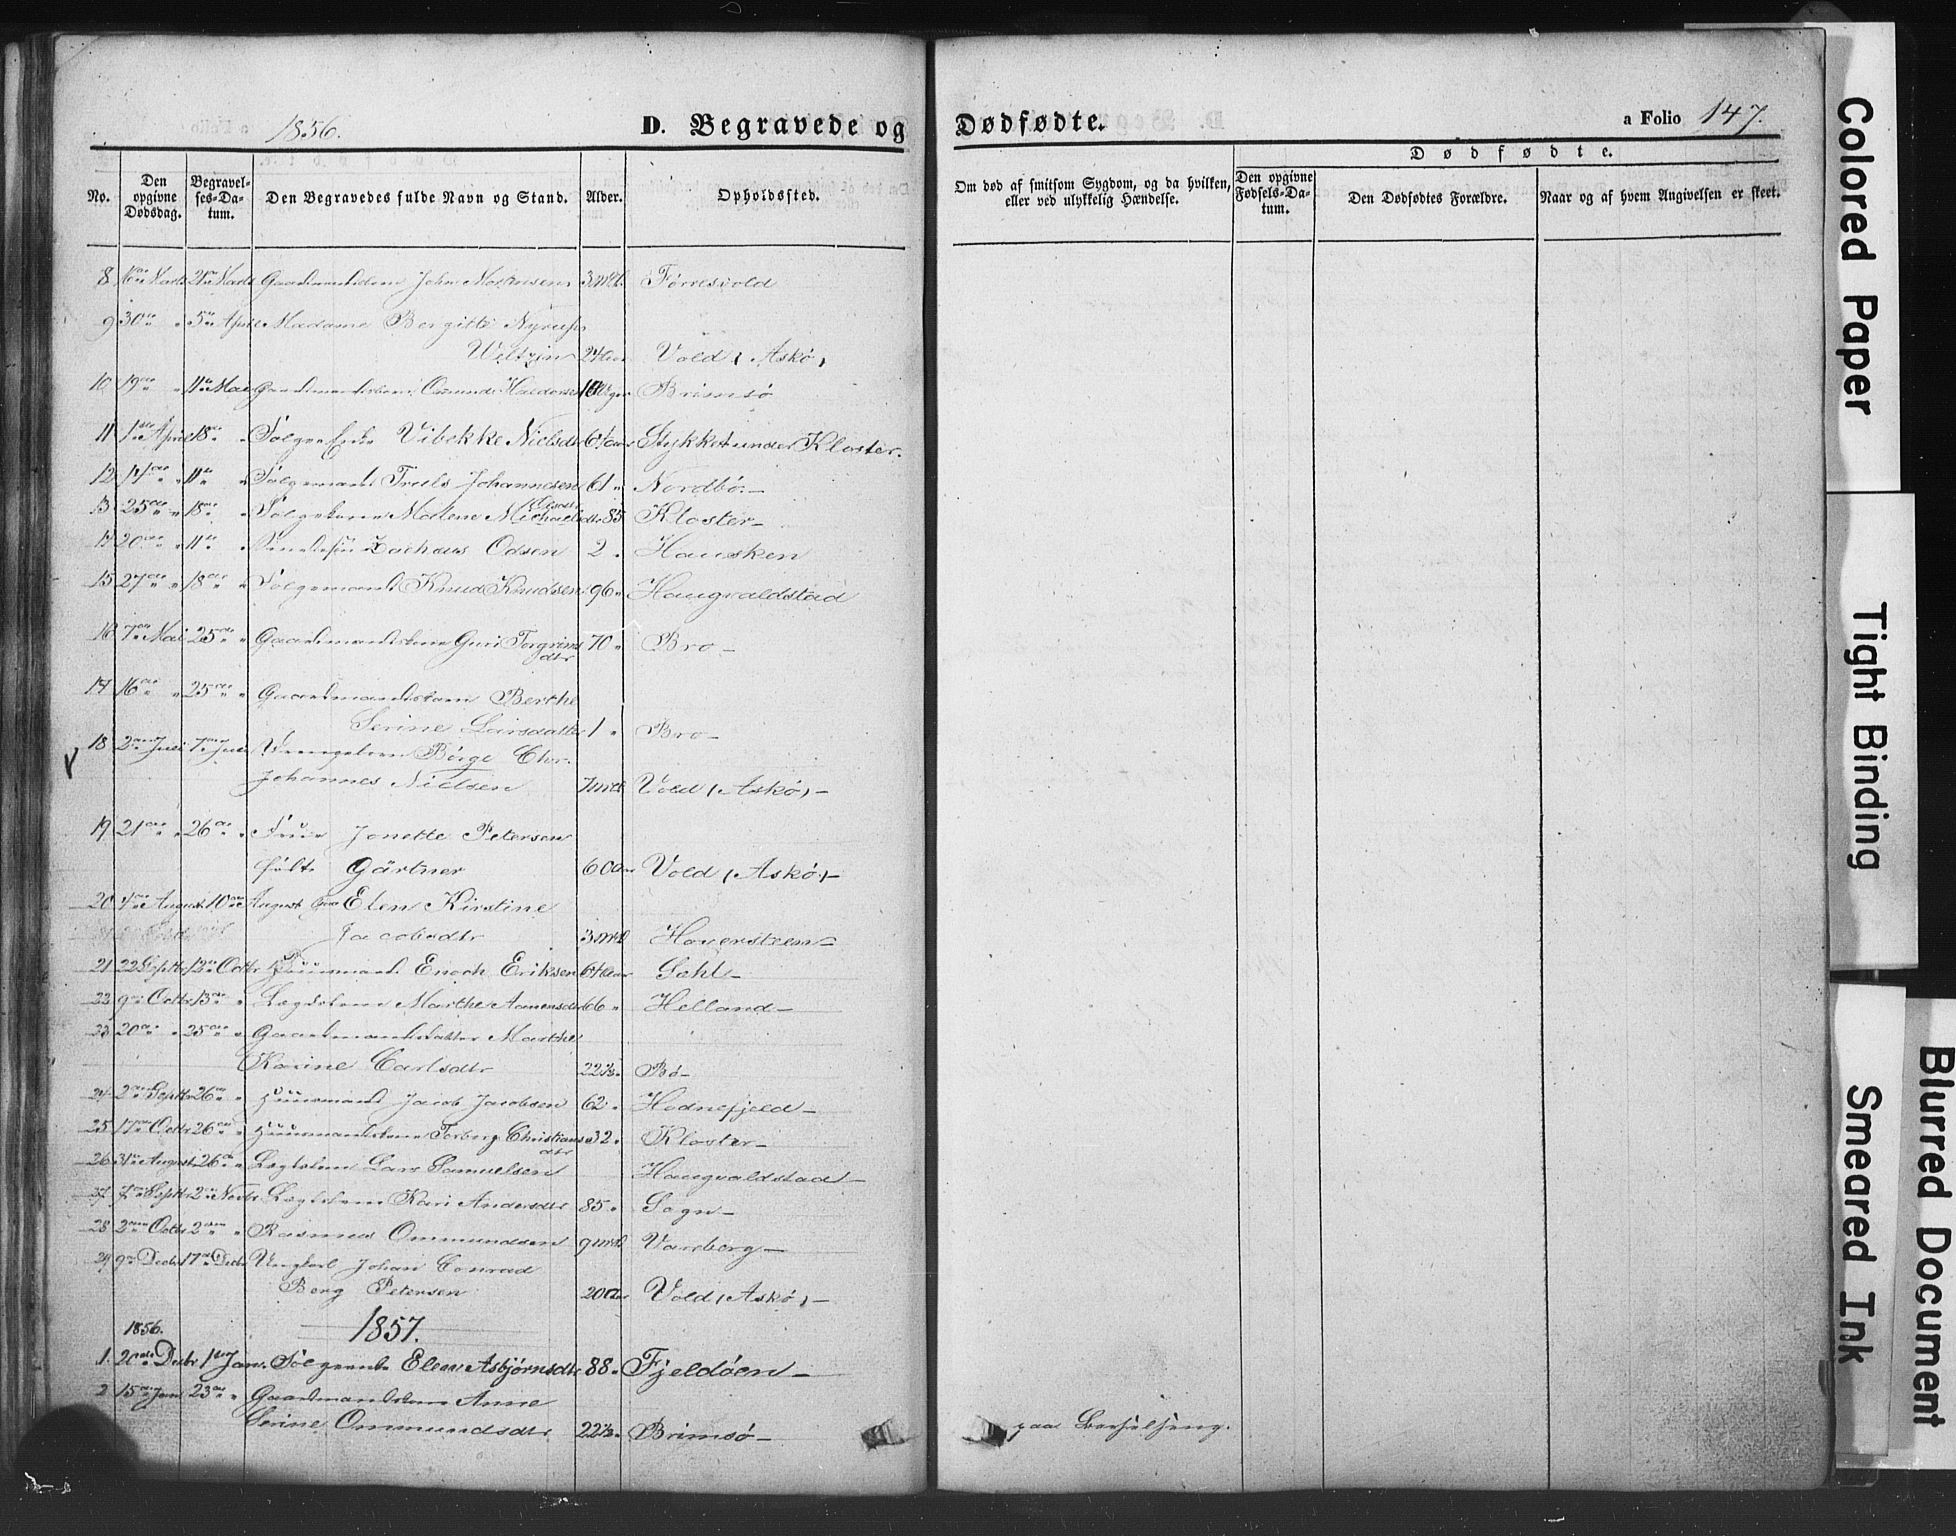 1856.
D. Begravede og Dødfødte.
a Folio 147.
No.
Den opgivne Dødsdag.
Begravelses-Datum.
Den Begravedes fulde Navn og Stand.
Alder.
Opholdssted.
Om død af smitsom Sygdom, og da hvilken, eller ved ulykkelig Hændelse.
Dødfødte.
Den opgivne Fødsels-Datum.
Den Dødfødtes Forældre.
Naar og af hvem Angivelsen er skeet.
8 16de Marts 21de Marts John 3 Mdr Førresvold
9 30te " 5te April Madame Bergitte
Weltzin 24 Aar Vold (Askø)
10 19de " 11te Mai Omund Haldorsen Brimsø
11 1ste April 18de " Vibekke Nielsdtr Stykket under Kloster.
12 11te " Truls Johannesen 61 " Nordbø –
13 25de " 18de " Malene Michaelsdtr 85 Kloster –
20de " 11te " Zachaus Odsen 2 " Hausken
15 27de " 18de " Knud Knudsen 96 " Haugvaldstad
16 7de Mai 25de " Guri Torgrims
dtr 70 " Bro –
17 16de " 25de " Berthe
Serine Larsdatter 1 " Bro –
18 2den Juli 7de Juli Børge Chr.
Johannes Nielsen 7 Mdr Vold (Askø) –
19 21de " 26de " Frue Jonette Petersen
født Gärtner 60 Aar Vold (Askø) –
20 4de August 10de August Elen Kirstine
Jacobsdtr 3 Mdr Haversteen –
21 22 Septbr 12te Octbr Huusmand Enoch Eriksen 64 Aar Sahl –
22 9de Octbr 13de " Lægdslem Marthe 66 " Helland –
23 20de " 25de " Gaardmandsdatter Marthe
Karine Carlsdtr 22½ " Bø –
24 2den Septbr 26de " Huusmand Jacob Jacobsen 62 " Hodnefjeld –
25 17de Octbr 26de " Huusmandskone Torborg Christians
dtr 32 " Kloster –
26 31te August 26de " Lægdslem Lars Samuelsen Haugvaldstad –
27 7de Septbr 2den Novbr Lægdslem Kari Andersdtr 85 " Sogn –
28 2den Octbr 2den " Rasmus Ommundsen 9 Mdr Vareberg –
29 9de Decbr 17de Decbr Ungkarl Johan Conrad
Berg Petersen 20 Aar Vold (Askø) –
1856.
1857.
1. 20de Decbr 1ste Jan. Føolgeenke Elen Asbjørnsdtr 88 " Fjeldøen –
2 15de Jan 23de " Gaardmandskone Anne
Serine Ommundsdtr 22½ " Brimsø – paa Barselseng.
Colored Paper
Tight Binding
Blurred Document
Smeared Ink